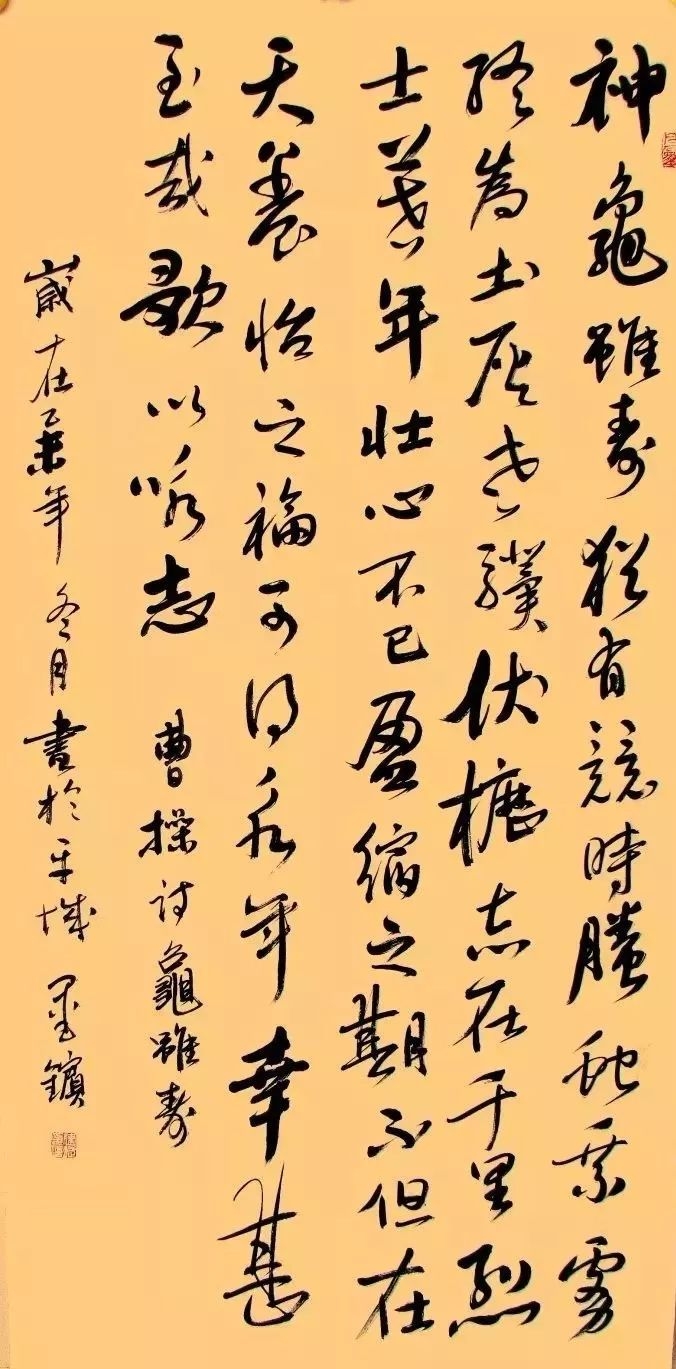 神龜雖壽猶有競時螣蛇乘霧
終為土灰老驥伏櫪志在千里烈
士暮年壯心不已盈縮之期不但在
天養怡之福可得永年幸甚
至哉歌以咏志 曹操詩龜雖壽
歲在乙未年冬月書於平城 鑌